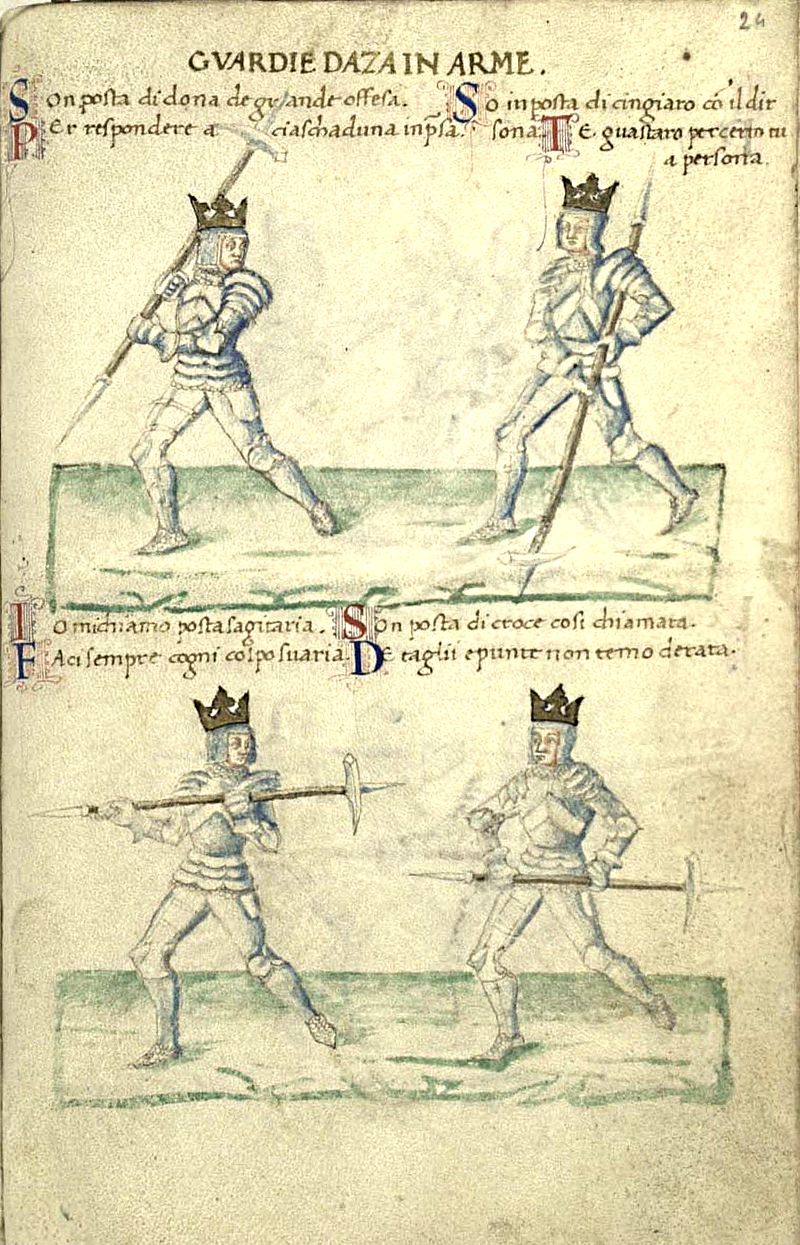 24
GVARDIE DAZA IN ARME.
Son posta di dona de grande offesa.
Per respondere a ciaschaduna in pr̃sa.
So in posta di cingiaro cõ il dir
sona. Te guastaro per certo tu
a persona.
Io mi chiamo posta sagitaria.
Faci sempre cogni colpo suaria.
Son posta di croce cosi chiamata.
De taglii e punte non temo derata.